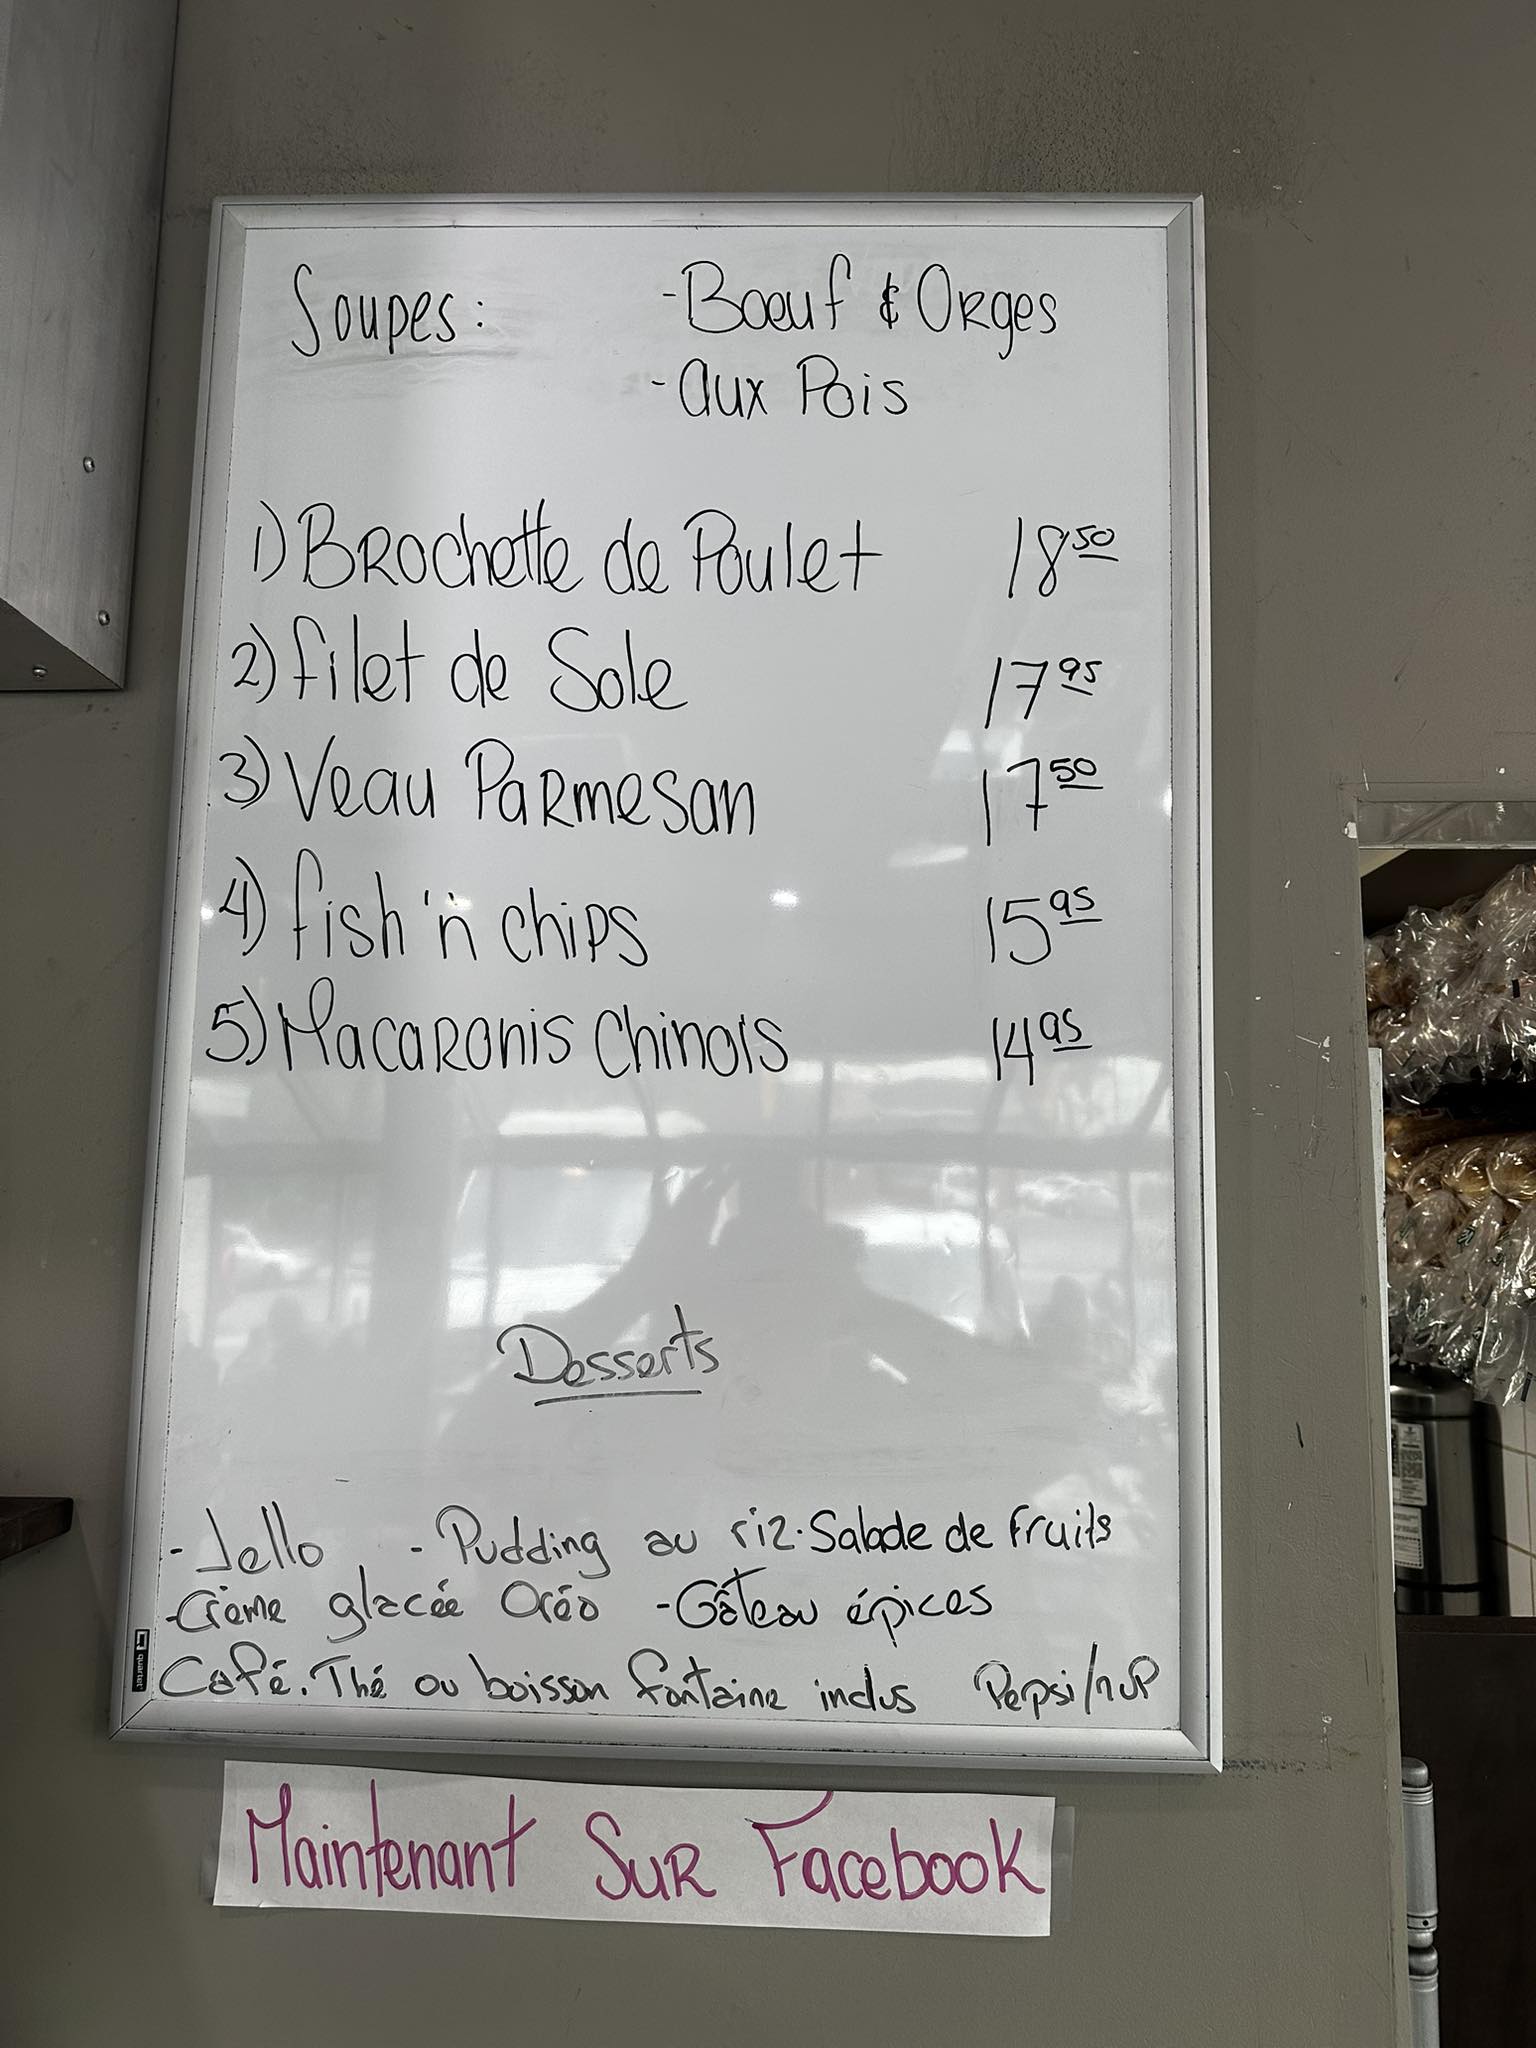 Soupes: -Boeuf & Orges
-Aux Pois
1) Brochette de Poulet 18 50
2) Filet de Sole 17 95
3) Veau Parmesan 17 50
4) Fish 'n chips 15 95
5) Macaronis Chinois 14 95
Desserts
-Jello -Pudding au riz.Salade de Fruits
-Crème glacée Oréo -Gâteau épices
Café.Thé ou boisson fontaine inclus Pepsi/7UP
quartet
Maintenant Sur Facebook